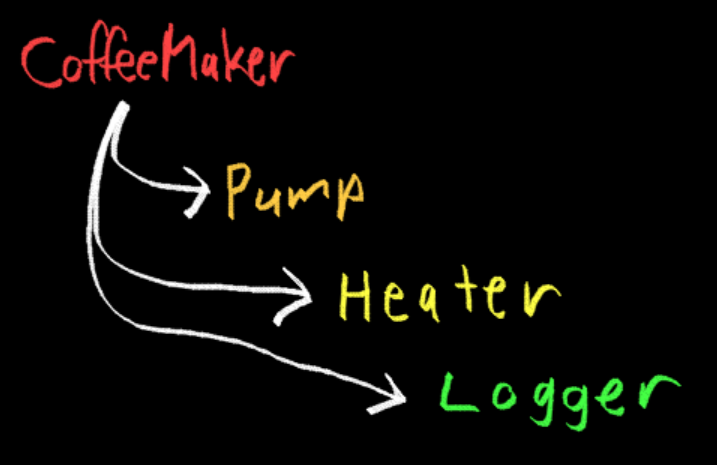 CoffeeMaker
Pump
Heater
Logger